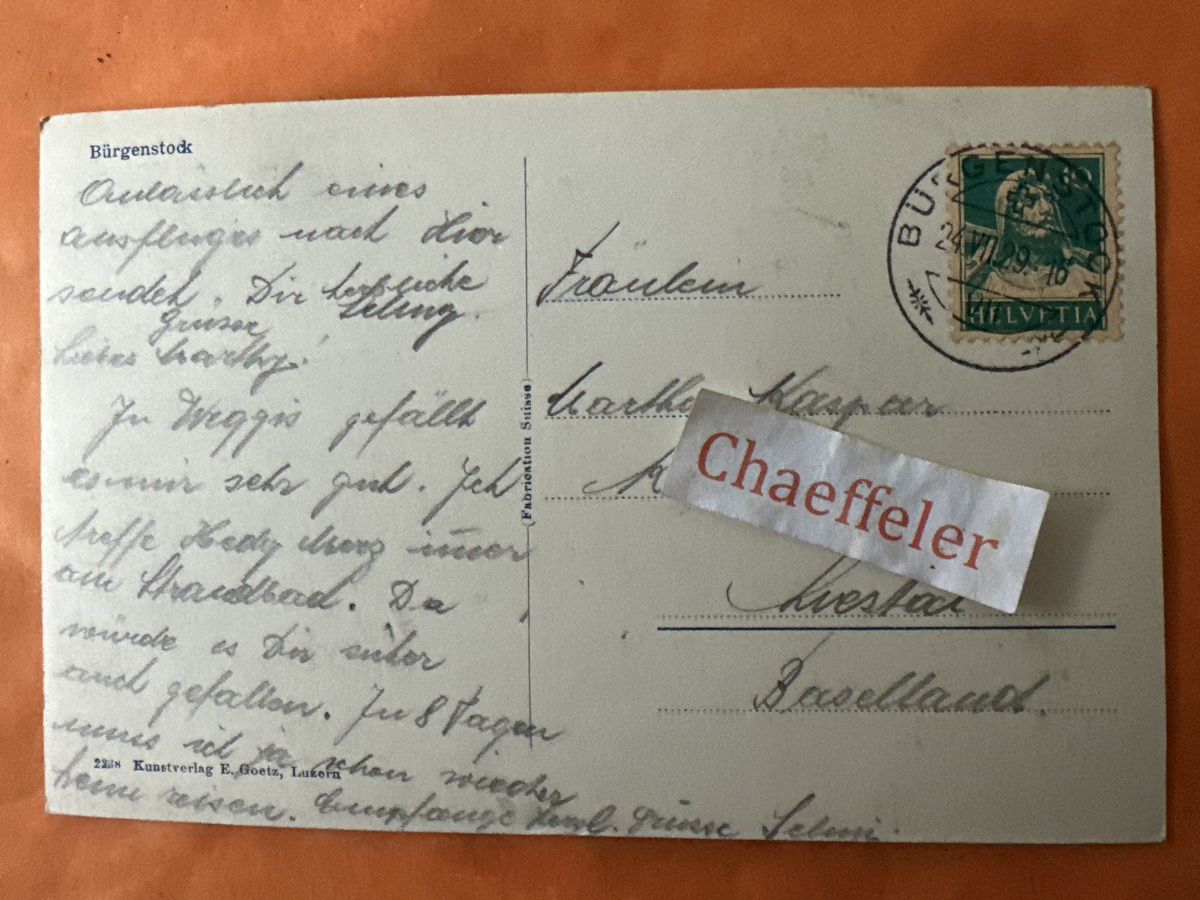 Bürgenstock
Anlässlich eines
Ausfluges nach hier
sendet Dir herzliche
Grüsse
Liebes Marthy!
In Weggis gefällt
es mir sehr gut. Ich
treffe Hedy immer
am Strandbad. Da
würde es Dir sicher
auch gefallen. In 8 Tagen
muss ich ja schon wieder
heim reisen. Empfange herzl. Grüsse
2238 Kunstverlag E. Goetz, Luzern
(Fabrication Suisse)
Fräulein
Martha Kaspar
Chaeffeler
Liestal
Baselland.
BÜRGENSTOCK
24.VII.29. 16
10
HELVETIA